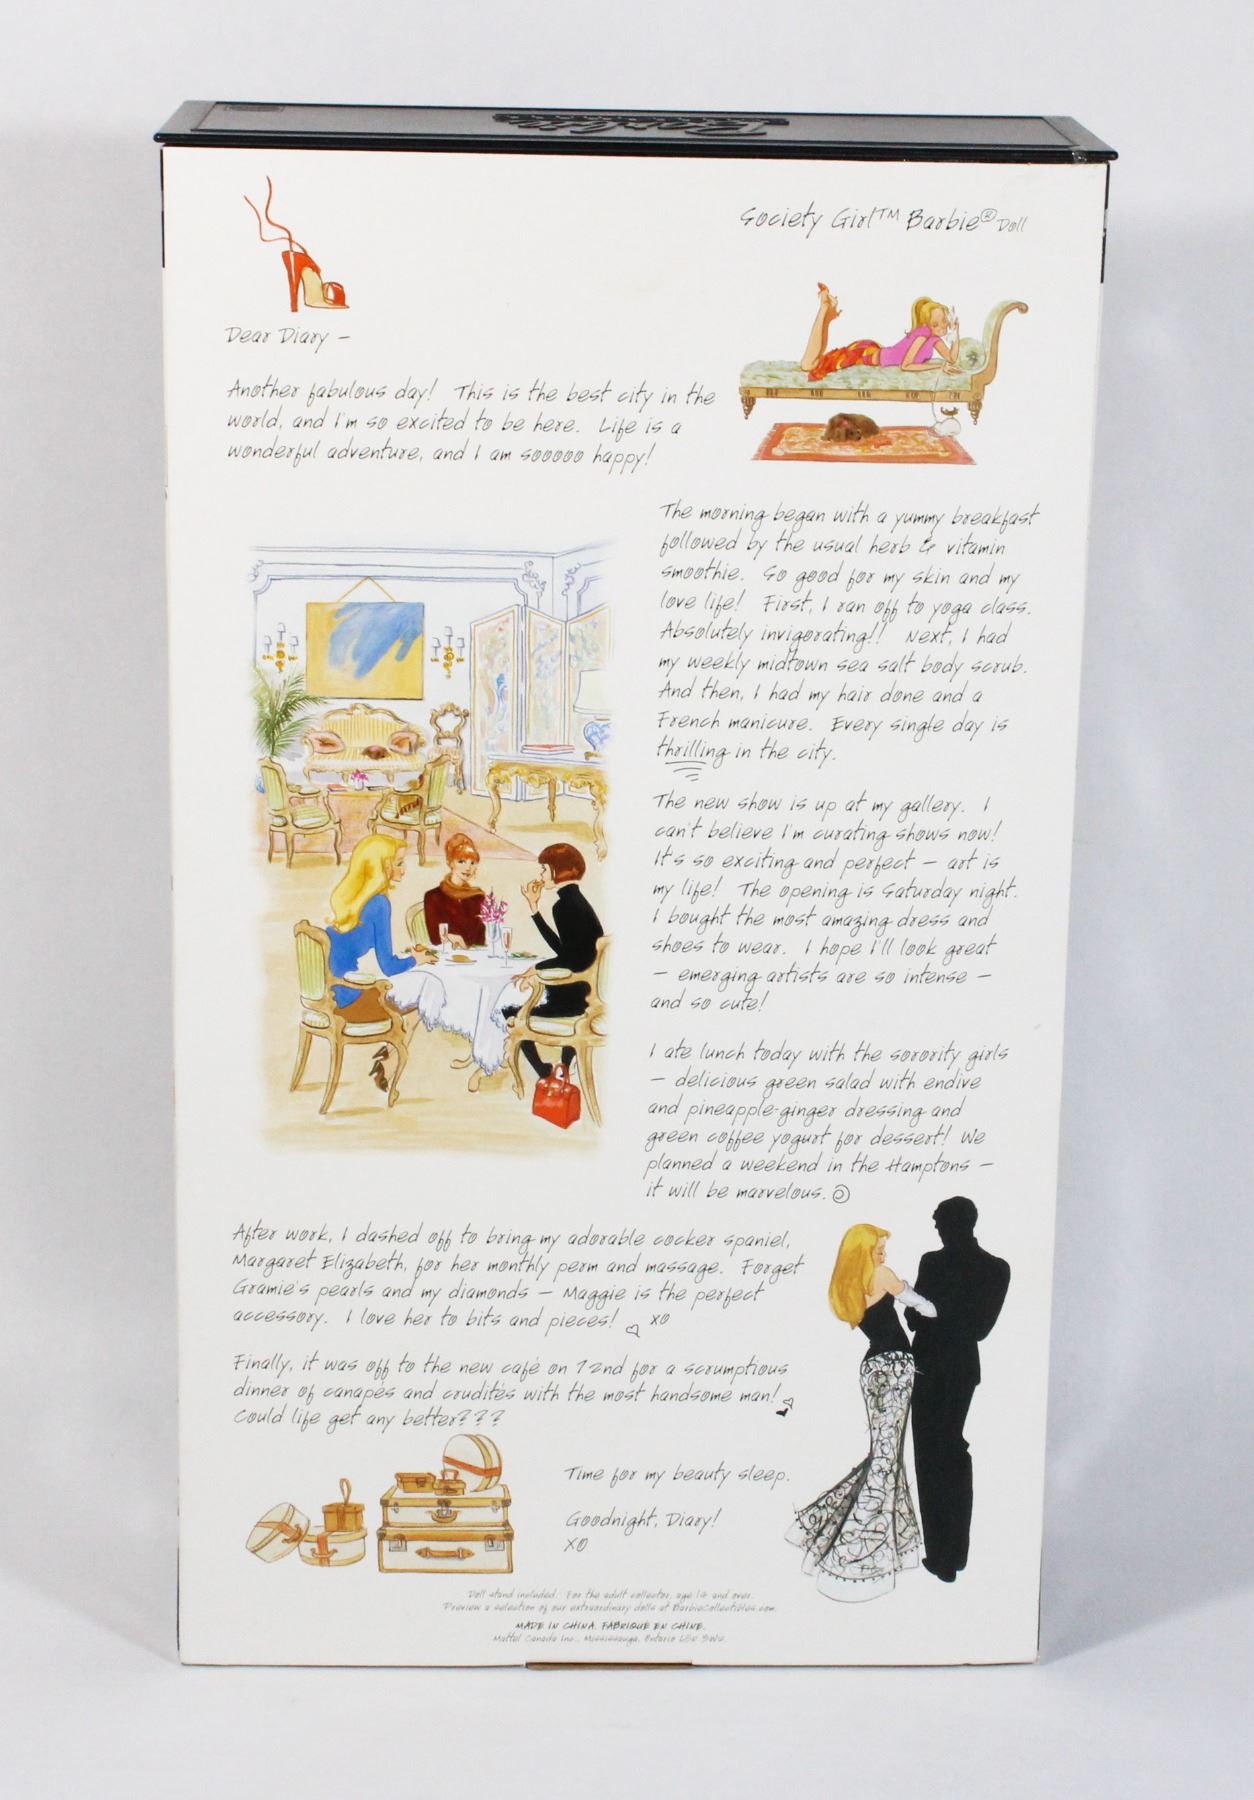 Barbie
Society Girl™ Barbie® Doll
Dear Diary –
Another fabulous day! This is the best city in the
world, and I'm so excited to be here. Life is a
wonderful adventure, and I am sooooo happy!
The morning began with a yummy breakfast
followed by the usual herb & vitamin
smoothie. So good for my skin and my
love life! First, I ran off to yoga class.
Absolutely invigorating!! Next, I had
my weekly midtown sea salt body scrub.
And then, I had my hair done and a
French manicure. Every single day is
thrilling in the city.
The new show is up at my gallery. I
can't believe I'm curating shows now!
It's so exciting and perfect – art is
my life! The opening is Saturday night.
I bought the most amazing dress and
shoes to wear. I hope I'll look great
– emerging artists are so intense –
and so cute!
I ate lunch today with the sorority girls
– delicious green salad with endive
and pineapple-ginger dressing and
green coffee yogurt for dessert! We
planned a weekend in the Hamptons –
it will be marvelous.
After work, I dashed off to bring my adorable cocker spaniel,
Margaret Elizabeth, for her monthly perm and massage. Forget
Gramie's pearls and my diamonds – Maggie is the perfect
accessory. I love her to bits and pieces! XO
Finally, it was off to the new café on 72nd for a scrumptious
dinner of canapés and crudités with the most handsome man!
Could life get any better???
Time for my beauty sleep.
Goodnight, Diary!
XO
Doll stand included. For the adult collector, age 14 and over.
Preview a selection of our extraordinary dolls at BarbieCollectibles.com.
MADE IN CHINA. FABRIQUÉ EN CHINE.
Mattel Canada Inc., Mississauga, Ontario L5R 3W2.